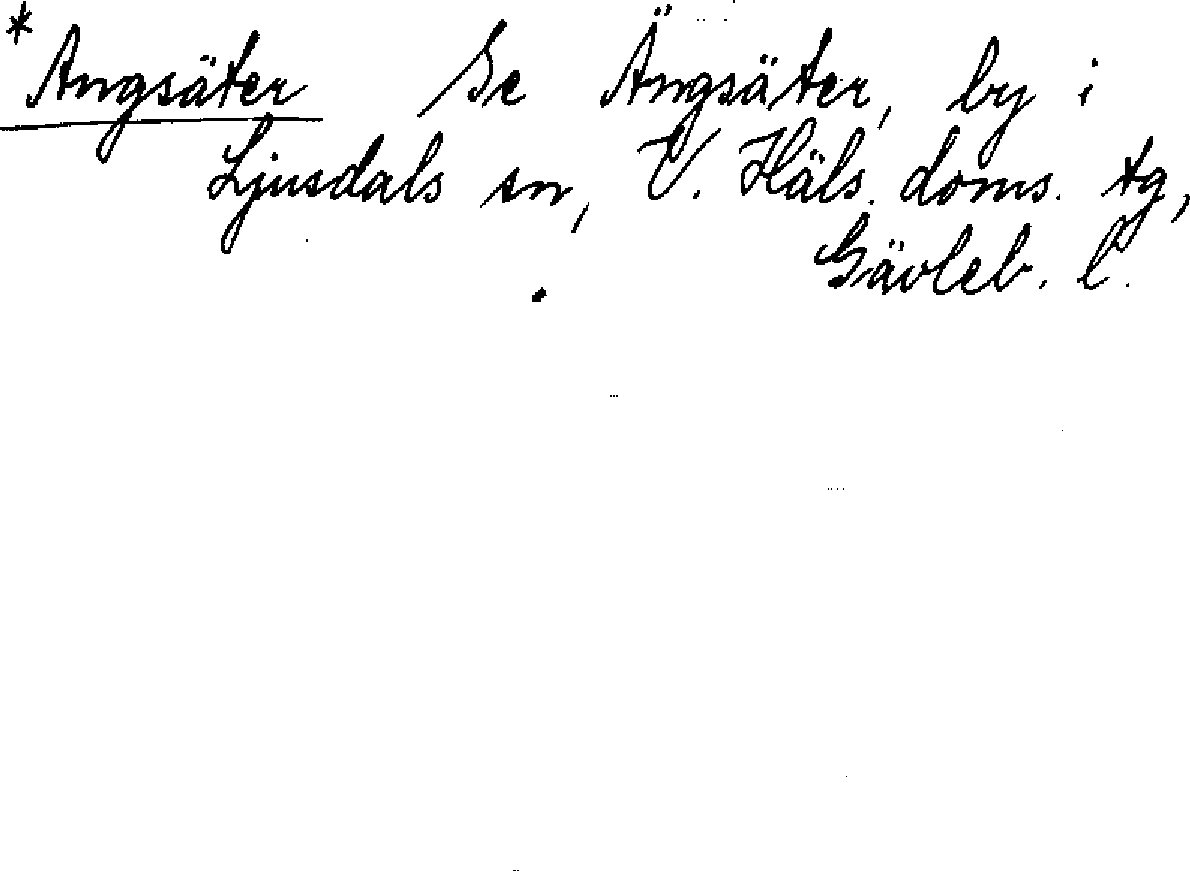 * Angsäter Se Ängsäter, by i
Ljusdals sn, V. Häls. doms. tg,
Gävleb. l.